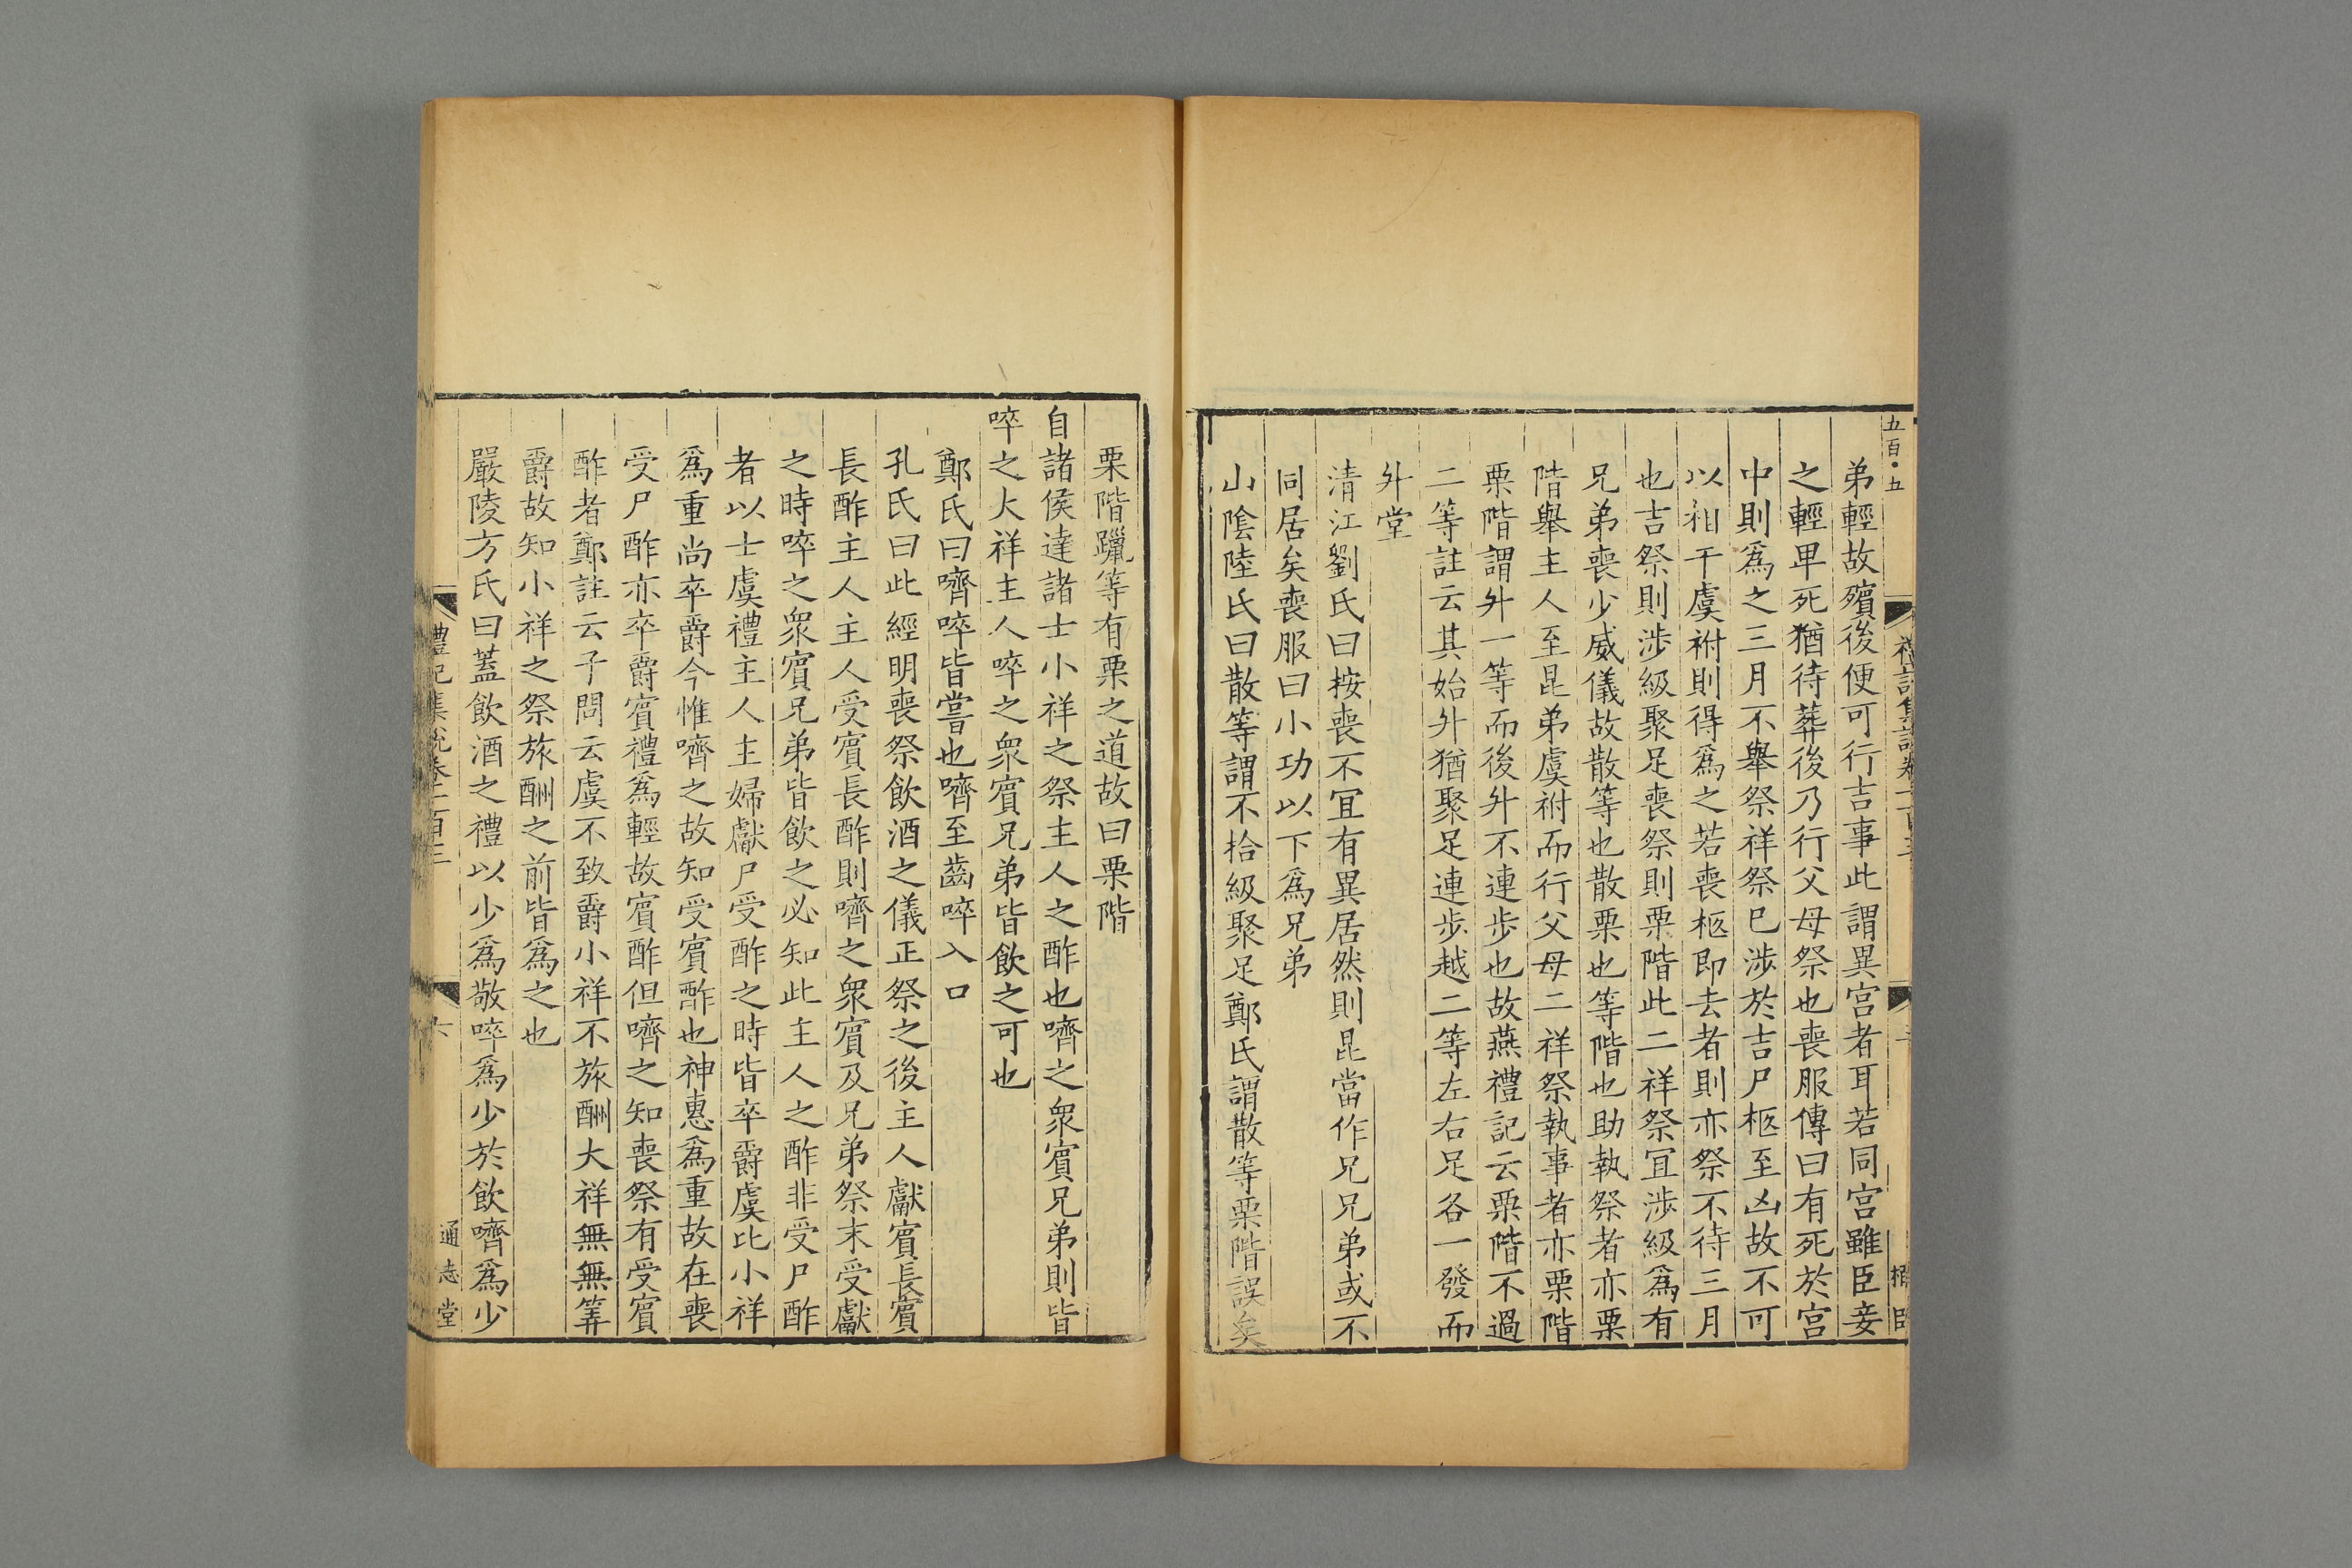 五百五
弟輕故殯後便可行吉事此謂異宫者耳若同宫雖臣妾
之輕卑死猶待葬後乃行父母祭也喪服傳曰有死於宫
中則爲之三月不舉祭祥祭巳涉於吉尸柩至凶故不可
以相干虞祔則得爲之若喪柩即去者則亦祭不待三月
也吉祭則涉級聚足喪祭則栗階此二祥祭宜涉級爲有
兄弟喪少威儀故散等也散栗也等階也助執祭者亦栗
階舉主人至昆弟虞祔而行父母二祥祭執事者亦栗階
栗階謂升一等而後升不連步也故燕禮記云栗階不過
二等註云其始升猶聚足連步越二等左右足各一發而
升堂
清江劉氏曰按喪不宜有異居然則昆當作兄兄弟或不
同居矣喪服曰小功以下爲兄弟
山隂陸氏曰散等謂不拾級聚足鄭氏謂散等栗階誤矣
栗階躐等有栗之道故曰栗階
自諸侯達諸士小祥之祭主人之酢也嚌之衆賓兄弟則皆
啐之大祥主人啐之衆賓兄弟皆飲之可也
鄭氏曰嚌啐皆嘗也嚌至齒啐入口
孔氏曰此經明喪祭飲酒之儀正祭之後主人獻賓長賓
長酢主人主人受賓長酢則嚌之衆賓及兄弟祭末受獻
之時啐之衆賓兄弟皆飲之必知此主人之酢非受尸酢
者以士虞禮主人主婦獻尸受酢之時皆卒爵虞比小祥
爲重尚卒爵今惟嚌之故知受賓酢也神惠爲重故在喪
受尸酢亦卒爵賓禮爲輕故賓酢但嚌之知喪祭有受賓
酢者鄭註云子問云虞不致爵小祥不旅酬大祥無無筭
爵故知小祥之祭旅酬之前皆爲之也
嚴陵方氏曰蓋飲酒之禮以少爲敬啐爲少於飲嚌爲少
禮記集說卷一百三
六
通志堂